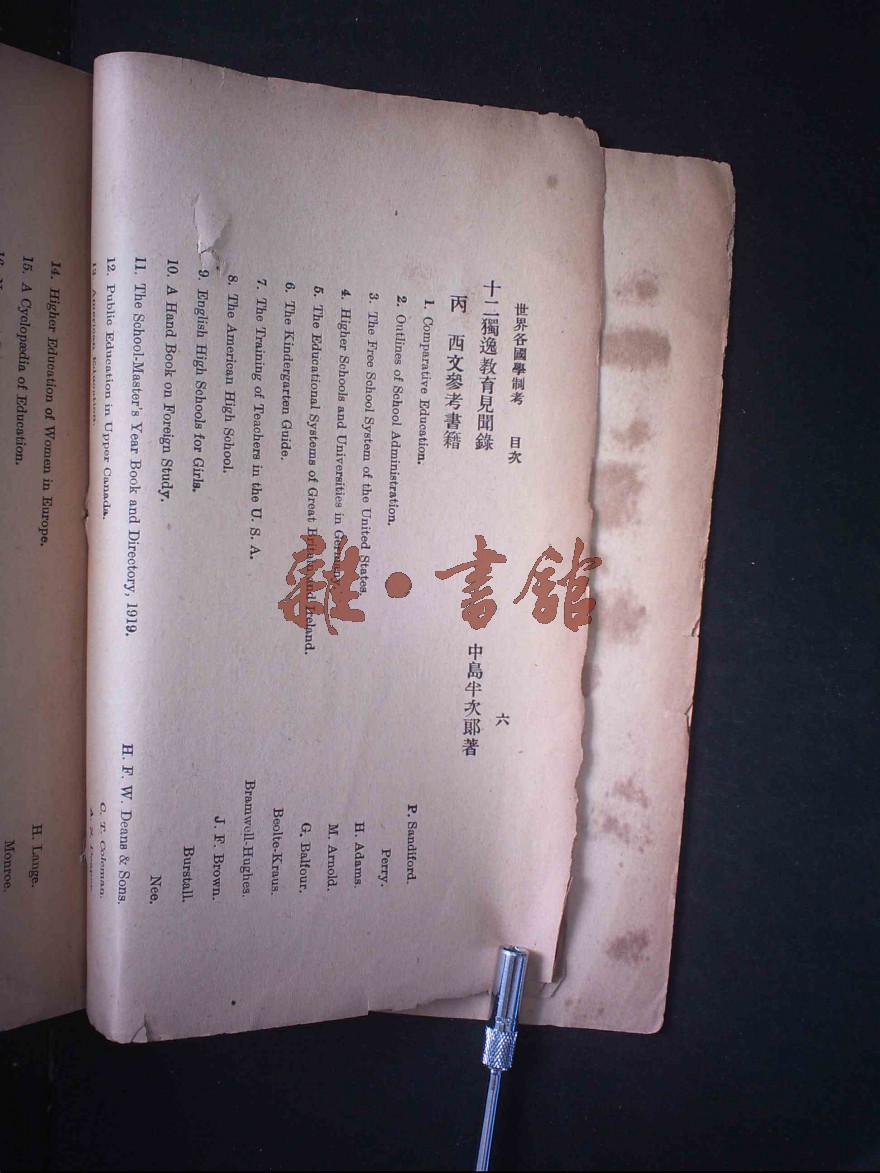 世界各國學制考 目次 六
十二獨逸教育見聞錄 中島半次郎著
丙 西文參考書籍
1. Comparative Education. P. Sandiford.
2. Outlines of School Administration. Perry.
3. The Free School System of the United States. H. Adams.
4. Higher Schools and Universities in Germany. M. Arnold.
5. The Educational Systems of Great Britain and Ireland. G. Balfour.
6. The Kindergarten Guide. Beolte-Kraus.
7. The Training of Teachers in the U. S. A. Bramwell-Hughes.
8. The American High School. J. F. Brown.
9. English High Schools for Girls. Burstall.
10. A Hand Book on Foreign Study. Nee.
11. The School-Master's Year Book and Directory, 1919. H. F. W. Deans & Sons.
12. Public Education in Upper Canada. C. T. Coleman.
13. American Education.
14. Higher Education of Women in Europe. H. Lange.
15. A Cyclopædia of Education. Monroe.
雜·書館